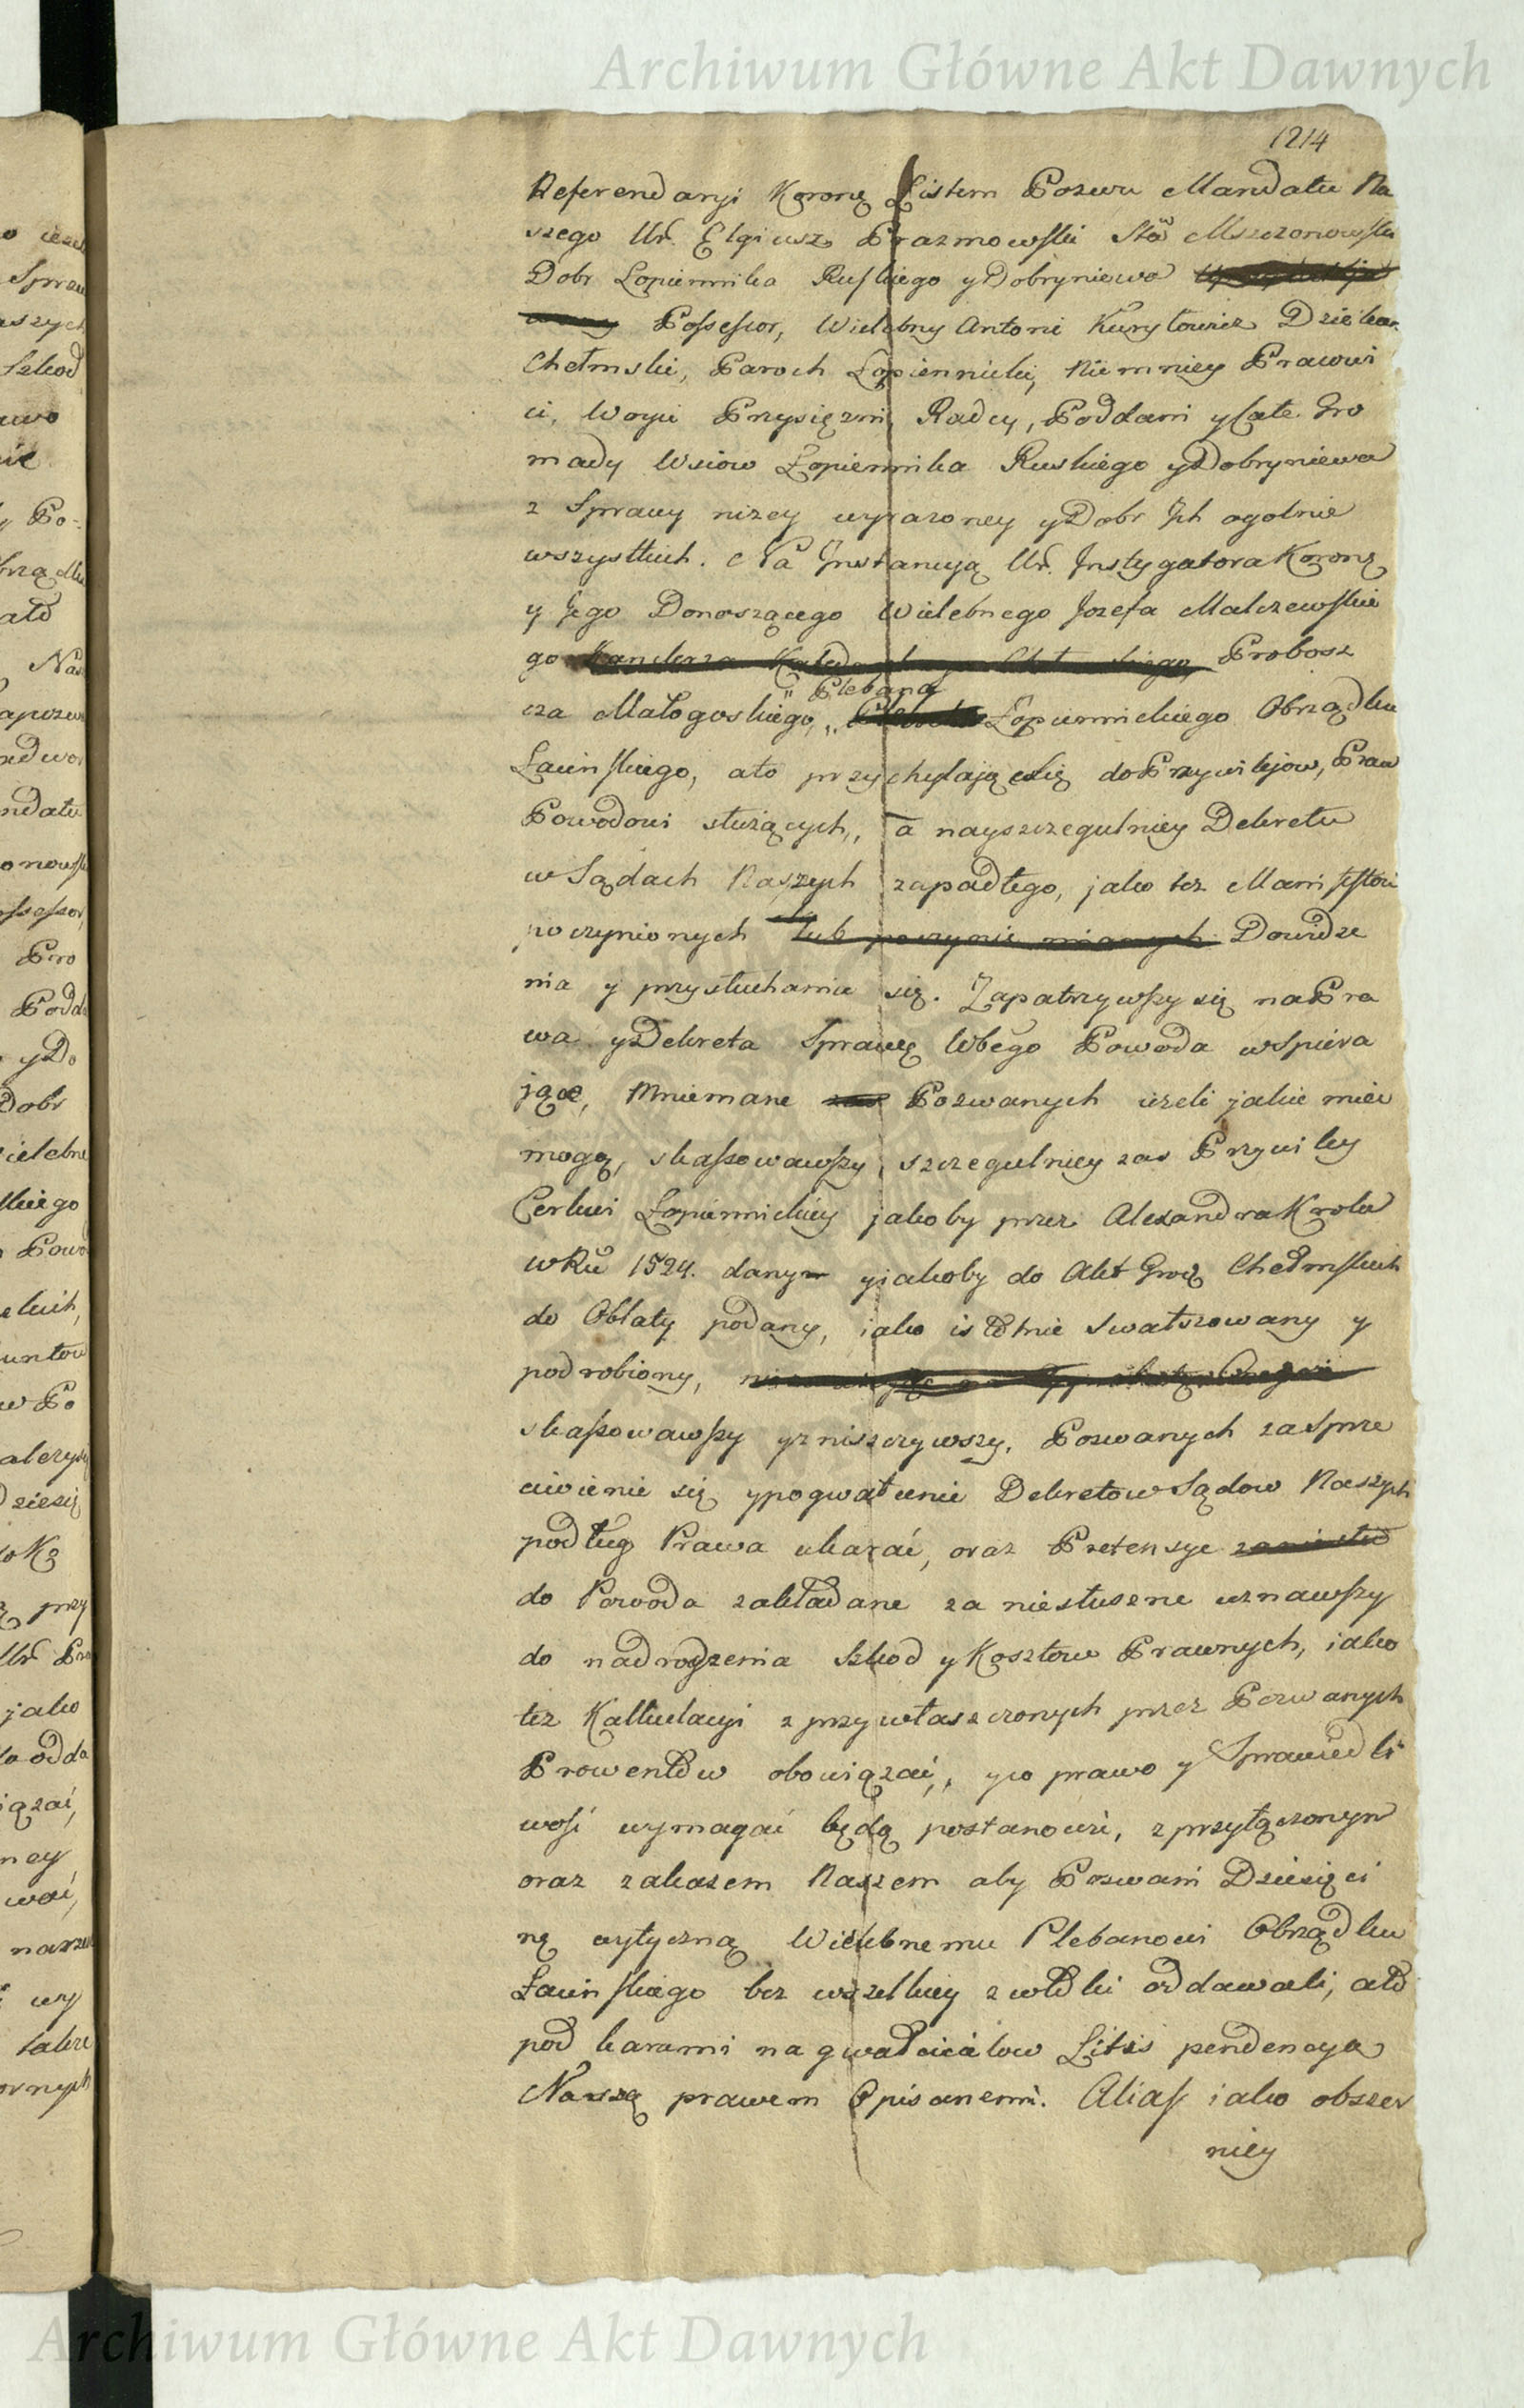 Archiwum Główne Akt Dawnych
1214
Referendaryi Koronę Listem Pozwu Mandatu Na
szego Ur. Elgiusz Prazmowski Stã Mszczonowski
Dobr Łopiennika Ruskiego y Dobryniewa
Possessor, Wielebny Antoni Kuryłowicz Dziekan
Chełmski, Paroch Łopiennicki, niemniey Prawni
ci, Woyci Przysięzni Radcy, Poddani y całe Gro
mady Wsiow Łopiennika Ruskiego y Dobryniewa
z Sprawy nizey wyrazoney y Dobr Ich ogolnie
wszystkich. Na Instancyą Ur. Instygatora Koronę
y Jego Donoszącego Wielebnego Jozefa Malczewskie
go Kanclerza Probosz
Plebana
cza Małogoskiego, Łopiennickiego Obrządku
Łacinskiego, ato przychylając się do Przywilejow, Praw
Powodowi słuzących, a nayszczegulniey Dekretu
w Sądach Naszych zapadłego, jako tez Manifestow
poczynionych lub poczynic mianych Dowidze
nia y przysłuchania się. Zapatrzywszy się na Pra
wa y Dekreta Sprawę Wbego Powoda wspiera
jące, Mniemane zas Pozwanych iezeli jakie miec
mogą, skassowawszy, szczegulniey zas Przywiley
Cerkwi Łopiennickiey jakoby przez Alexandra Krola
w Ru 1524. dany y jakoby do Akt Grodz Chełmskich
do Oblaty podany, iako istotnie swałszowany y
podrobiony,
skassowawszy y zniszczywszy, Pozwanych za sprze
ciwienie się y pogwałcenie Dekretow Sądow Naszych
podług Prawa ukarać, oraz Pretensye
do Powoda zakładane za niesłuszne uznawszy
do nadrodzenia Szkod y Kosztow Prawnych, iako
tez Kalkulacyi z przywłaszczonych przez Pozwanych
Prowentow obowiązać, y co prawo y Sprawiedli
wość wymagać będą postanowić, z przyłączonym
oraz zakazem Naszem aby Pozwani Dziesięci
nę wytyczną Wielebnemu Plebanowi Obrządku
Łacinskiego bez wszelkiey zwłoki oddawali, ato
pod karami na gwałcicielow Litis pendencya
Naszą prawem Opisanemi. Alias iako obszer
niey
Archiwum Główne Akt Dawnych